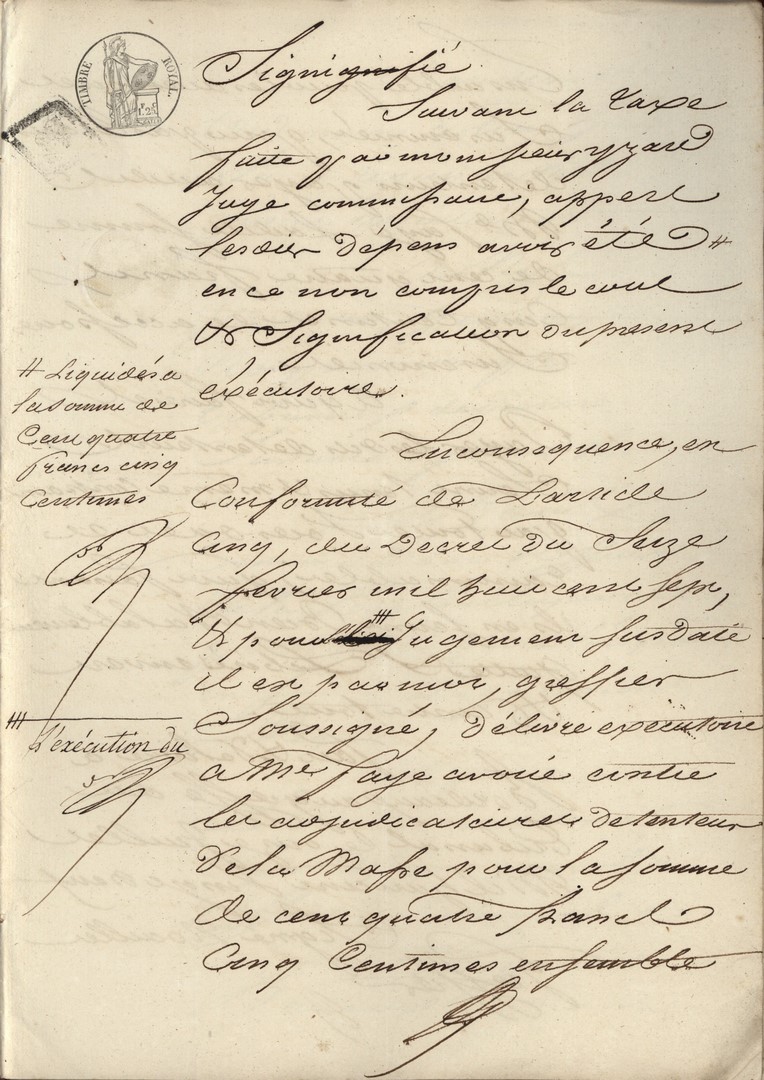 TIMBRE ROYAL.
Signignifié
Suivant la taxe
faite par monsieur yzard
Juge commissaire, appert
lesdits dépens avoir été #
en ce non compris le cout
& Signification du présent
exécutoire.
# Liquidés a
la somme de
Cent quatre
francs cinq
Centimes
En conséquence, en
Conformité de L'article
cinq, du Decret du Seize
fevrier mil huit cent sept,
& pour Jugement susdaté
il est par moi, greffier
Soussigné, délivré exécutoire
L'exécution du
a Me Faye avoué contre
les adjudicataires detenteurs
De la Masse pour la somme
de cent quatre francs
Cinq Centimes ensemble